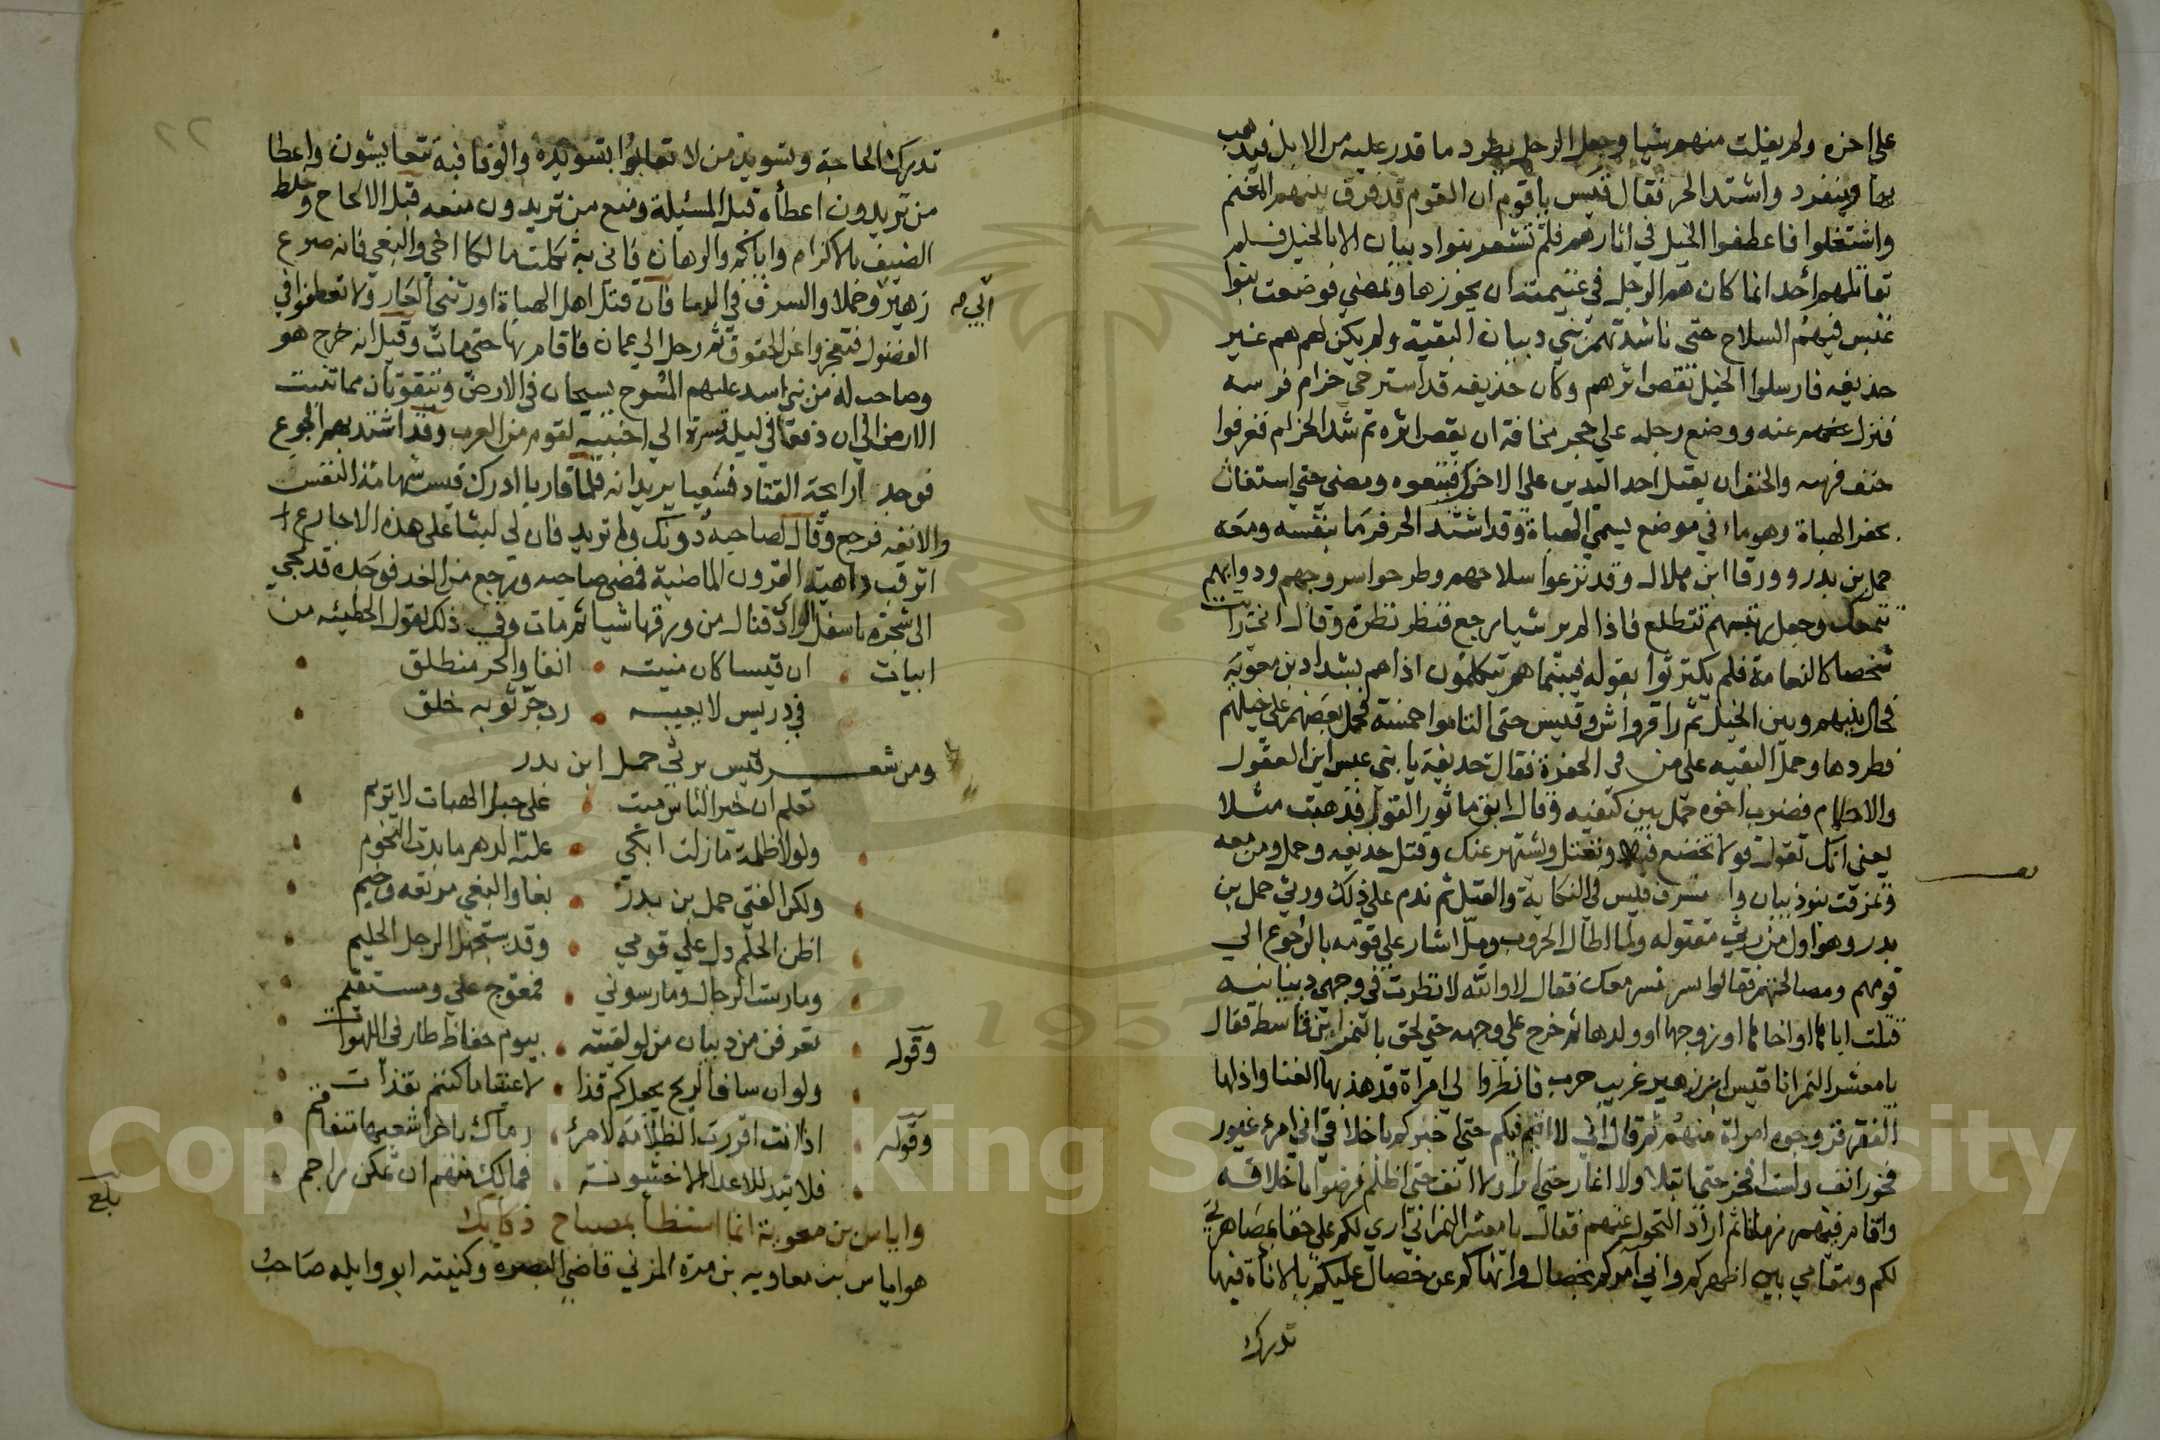 على اخره ولم يفلت منهم شيا وجعل الرجل يطرد ما قدر عليه من الابل فيذهب
بها وينفرد واشتد الحر فقال قيس ياقوم ان القوم قد فرق بينهم المغنم
واشتغلوا فاعطفوا الخيل في اثارهم فلم تشعر بنوا دبيان الا بالخيل فلم
تقاتلهم أحد انما كان هم الرجل في غنيمته ان يحوزها ويمضي فوضعت بنوا
عبس فيهم السلاح حتى ناشدتهم بني دبيان البقية ولم يكن لهم هم غير
حذيفه فارسلوا الخيل تقص اثرهم وكان حذيفه قد استرخى حزام فرسه
فنزل عنه ووضع رجله علي حجر مخافة ان يقص اثره ثم شد الحزام فعرفوا
حنف فرسه والحنف ان يقبل احد اليدين على الاخرى فتبعوه ومضى حتى استغاث
بحفر الهباة وهو ماء في موضع يسمي الهباة وقد اشتد الحر فرما بنفسه ومعه
حمل بن بدر وورقا ابن هلال وقد نزعوا سلاحهم وطرحوا سروجهم ودوابهم
تتمعك وجعل تتطلع فاذا لم ير شيا رجع فنظر نظرة وقال اني رايت
شخصا كالنعامة فلم يكترثوا بقوله فبينما هم يتكلمون اذا هم بشداد بن معوية
فحال بينهم وبين الخيل ثم راقرواش وقيس حتى التاموا خمسة فحمل بعضهم على خيلهم
فطردها وحمل البقيه على من في الحفرة فقال حذيفة يا بني عبس اين العقول
والاحلام فضرب اخوه حمل بين كتفيه وقال ابق ماثور القول فذهبت مثلا
يعني انك تقول قولا تخضع فيه وتقتل ويشتهر عنك وقتل حذيفه وحمل ومن معه
وتمزقت بنو ذبيان واسرف قيس في النكاية والقتل ثم ندم على ذلك ورثى حمل بن
بدر وهو اول من رثي مقتوله ولما اطال الحروب وملّ اشار علي قومه بالرجوع الي
قومهم ومصالحتهم فقالوا سر نسر معك فقال لا والله لا نظرت في وجهي دبيانيه
قتلت اباها او اخاها او زوجها او ولدها ثم خرج على وجهه حتى لحق بالنمر ابن قاسط فقال
يا معشر النمر انا قيس ابن زهير غريب حرب فانظروا لي امراة قد هذبها الغنا واذلها
الفقر فزوجوه امراة منهم ثم قال اني لا اقيم فيكم حتى اخبركم باخلاقي اني امرء غيور
فخور انف ولست افخر حتى ابتلا ولا اغار حتى ارا ولا انف حتى اظلم فرضوا باخلاقه
واقام فيهم زمانا ثم اراد التحول عنهم فقال يا معشر النمر اني اري لكم علي حقا بمصاهرتي
لكم ومقامي بين اظهركم واني آمركم بخصال وانهاكم عن خصال عليكم بالاناة فيها
تدرك
تدرك الحاجة وتسويد من لا تعابوا بتسويده والوفا فبه تتعايشون واعطا
من تريدون اعطاه قبل المسئيلة ومنع من تريدون منعه قبل الالحاح وخلط
الضيف بالاكرام واياكم والرهان فاني به ثكلت مالكا اخي والبغي فانه صرع
زهير وحملا والسرف في الدما فان قتل اهل الهباة اورثني العار ولا تعطوا في
الفضول فتعجزوا عن الحقوق ثم رحل الي عمان فاقام بها حتى مات وقيل انه خرج هو
وصاحب له من بني اسد عليهم المسوح يسيحان في الارض ويتقوتان مما تنبت
الارض الي ان دفعا في ليلة قرة الي اخبيه لقوم من العرب وقد اشتد بهم الجوع
فوجدا رايحة القتاد فسعيا يريدانه فلما قاربا ادرك قيس شهامة النفس
والانفه فرجع وقال لصاحبه دونك وما تريد فان لي لبثا على هذه الاجارع
اترقب داهية القرون الماضية فمضى صاحبه ورجع من الغد فوجده قد لجي
الى شجرة باسفل الواد فنال من ورقها شيا ثم مات وفي ذلك يقول الحطيئه من
ابيات ان قيسا كان منيته انفا والحر منطلق
في دريس لا يغيبه رب حر ثوبه خلق
ومن شعر قيس يرثي حمل ابن بدر
تعلم ان خير الناس ميت على جفر الهبات لا تريم
ولولا ظلمة مازلت ابكي عليه الدهر ما بدت النجوم
ولكن الفتى حمل بن بدر بغا والبغي مرتعه وخيم
اظن الحلم دل علي قومي وقد يستجهل الرجل الحليم
ومارست الرجال ومارسوني فمعوج علي ومستقيم
وقوله تعرفن من دبيان من لو لقيته بيوم حفاظ طار في اللهوات
ولو ان سافا الريح يجعلكم قذا لاعيننا ما كنتم بقذات
وقوله اذا انت اقررت الظلامة لامرئ رماك باخرا شعبها متفاقم
فلا تبد للاعدا الا خشونة فمالك منهم ان تمكن راحم
واياس بن معوية انما استضأ بمصباح ذكايك
هو اياس بن معاويه بن مرة المزني قاضي البصره وكنيته ابو وايله صاحب
بلغ
Copyright © King Saud University
1957